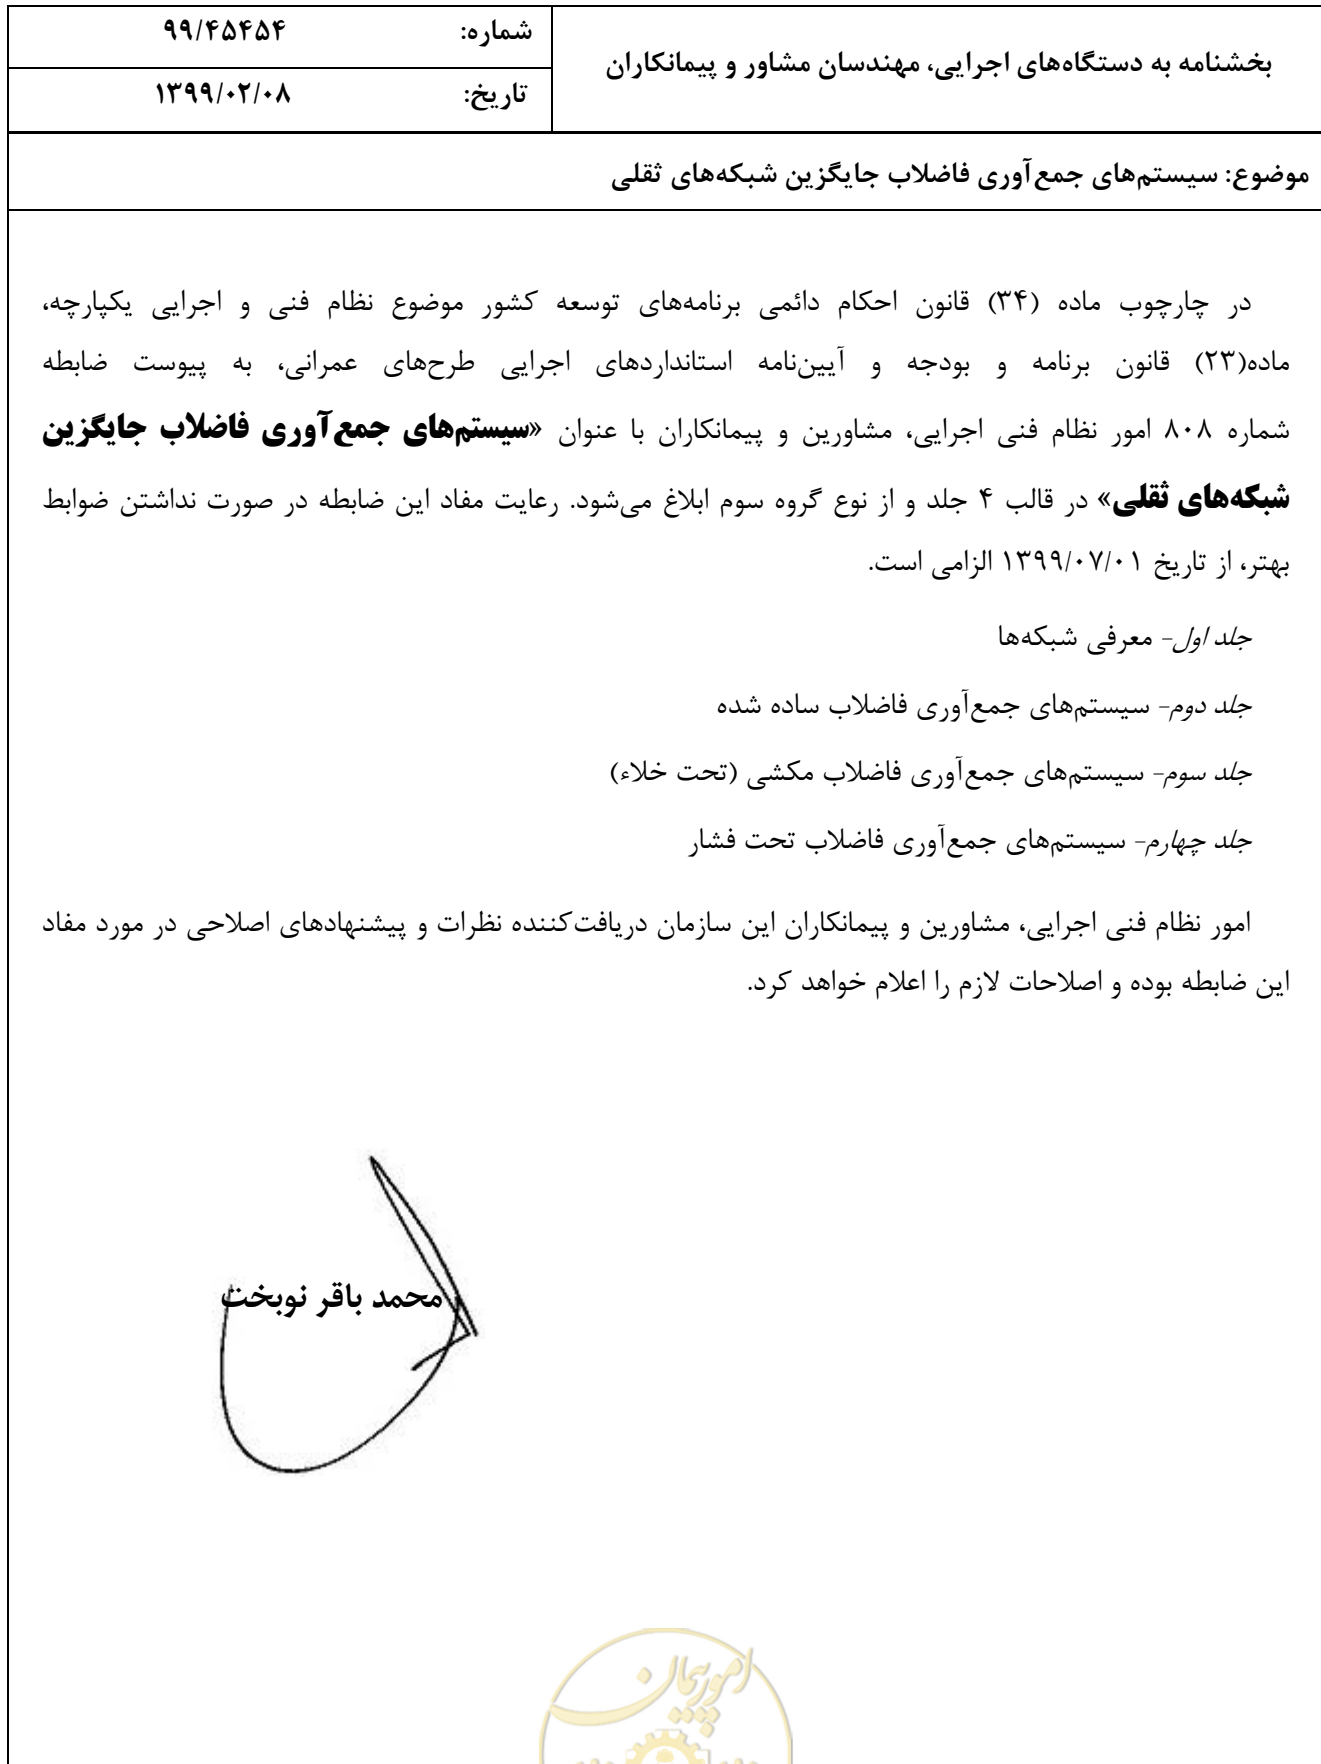 بخشنامه به دستگاه‌های اجرایی، مهندسان مشاور و پیمانکاران
شماره: ۹۹/۴۵۴۵۴
تاریخ: ۱۳۹۹/۰۲/۰۸
موضوع: سیستم‌های جمع‌آوری فاضلاب جایگزین شبکه‌های ثقلی
در چارچوب ماده (۳۴) قانون احکام دائمی برنامه‌های توسعه کشور موضوع نظام فنی و اجرایی یکپارچه،
ماده(۲۳) قانون برنامه و بودجه و آیین‌نامه استانداردهای اجرایی طرح‌های عمرانی، به پیوست ضابطه
شماره ۸۰۸ امور نظام فنی اجرایی، مشاورین و پیمانکاران با عنوان «سیستم‌های جمع‌آوری فاضلاب جایگزین
شبکه‌های ثقلی» در قالب ۴ جلد و از نوع گروه سوم ابلاغ می‌شود. رعایت مفاد این ضابطه در صورت نداشتن ضوابط
بهتر، از تاریخ ۱۳۹۹/۰۷/۰۱ الزامی است.
جلد اول- معرفی شبکه‌ها
جلد دوم- سیستم‌های جمع‌آوری فاضلاب ساده شده
جلد سوم- سیستم‌های جمع‌آوری فاضلاب مکشی (تحت خلاء)
جلد چهارم- سیستم‌های جمع‌آوری فاضلاب تحت فشار
امور نظام فنی اجرایی، مشاورین و پیمانکاران این سازمان دریافت‌کننده نظرات و پیشنهادهای اصلاحی در مورد مفاد
این ضابطه بوده و اصلاحات لازم را اعلام خواهد کرد.
محمد باقر نوبخت
امور پیمان